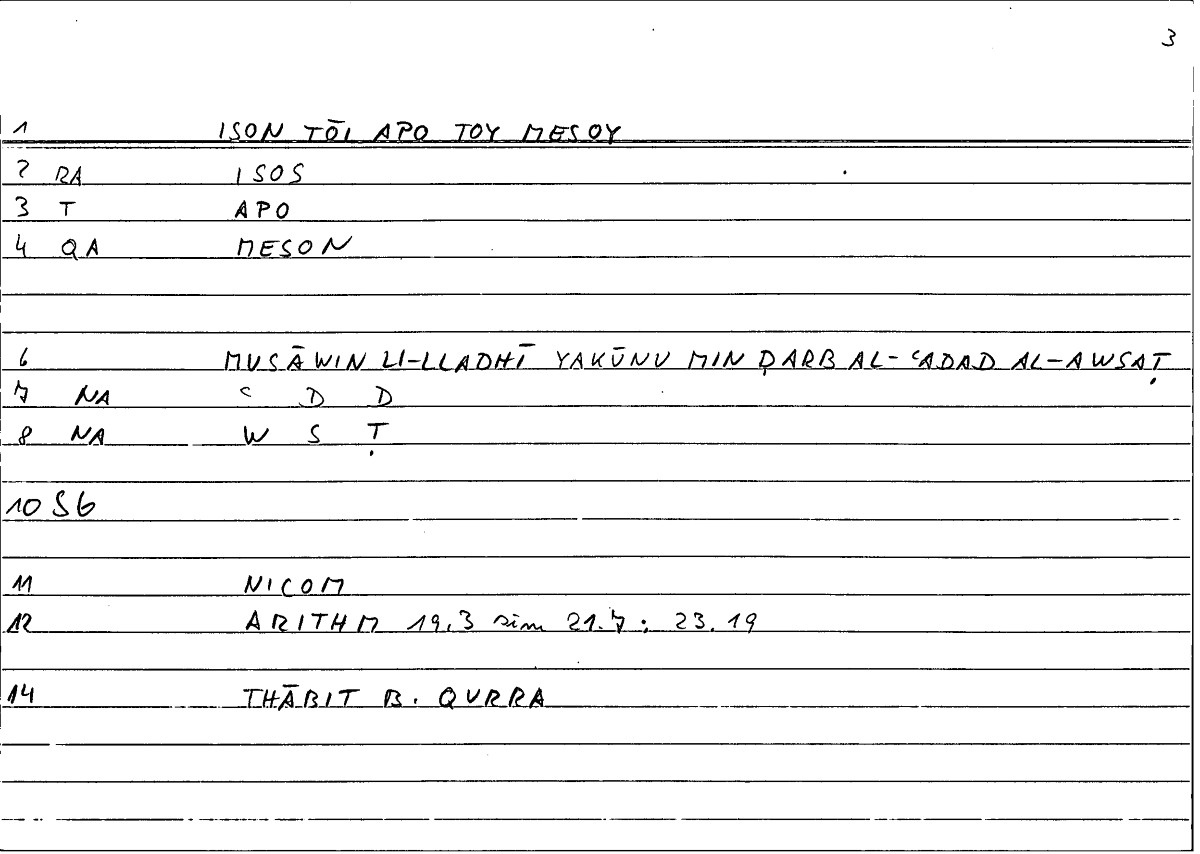 3
1 ISON TŌI APO TOY MESOY
2 RA ISOS
3 T APO
4 QA MESON
6 MUSĀWIN LI-LLADHĪ YAKŪNU MIN ḌARB AL-ʿADAD AL-AWSAṬ
7 NA ʿ D D
8 NA W S Ṭ
10 S6
11 NICOM
12 ARITHM 19.3 sim 21.7; 23.19
14 THĀBIT B. QURRA